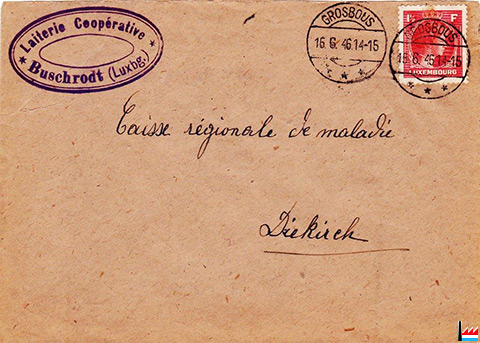 Laiterie Coopérative
Buschrodt (Luxbg.)
GROSBOUS
16. 6. 46.14-15
GROSBOUS
16. 6. 46.14-15
1¾ F
LUXEMBOURG
Caisse régionale de maladie
Diekirch